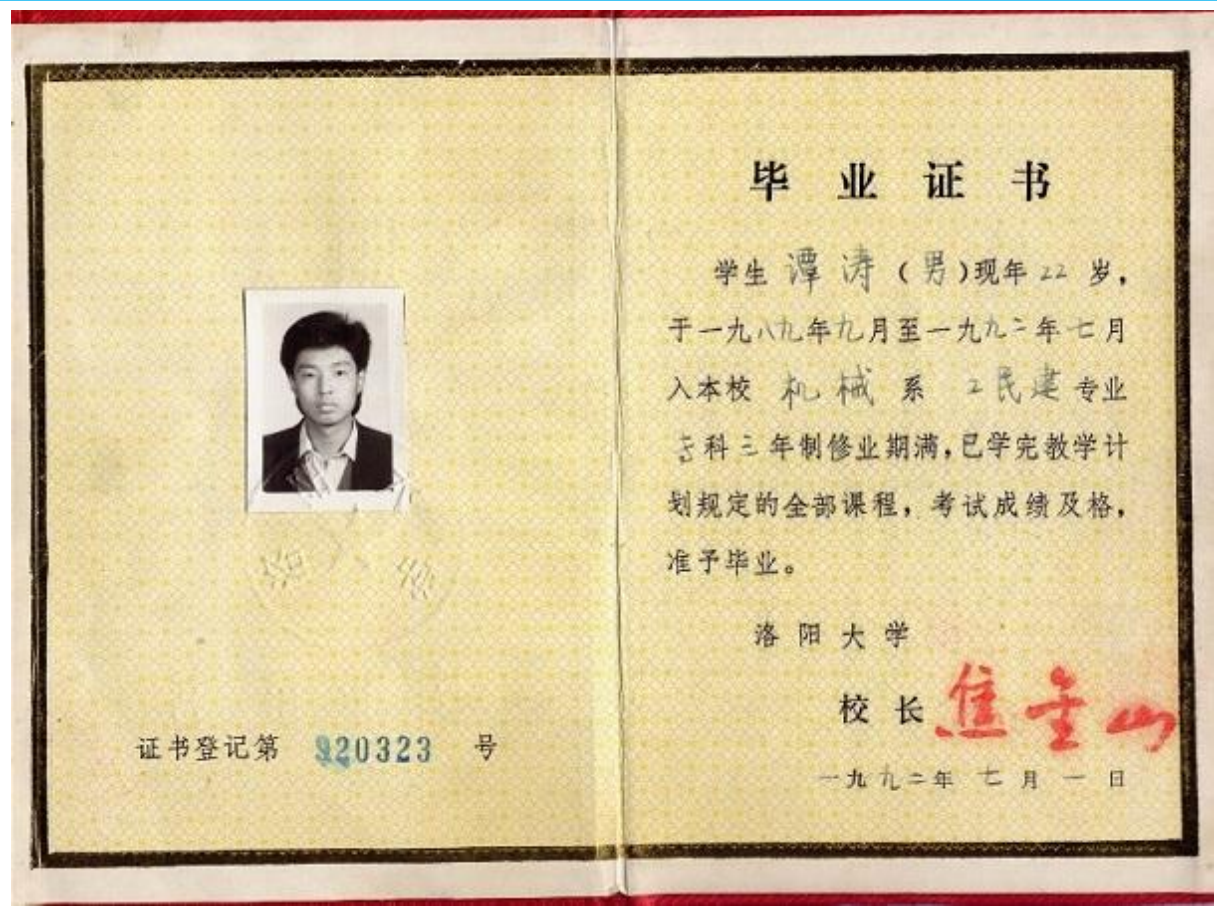 证书登记第 920323 号
毕业证书
学生 谭涛（男）现年 22 岁，
于一九八九年九月至一九九二年七月
入本校 机械 系 工民建 专业
专科三年制修业期满，已学完教学计
划规定的全部课程，考试成绩及格，
准予毕业。
洛阳大学
校长 焦金山
一九九二年 七月 一日